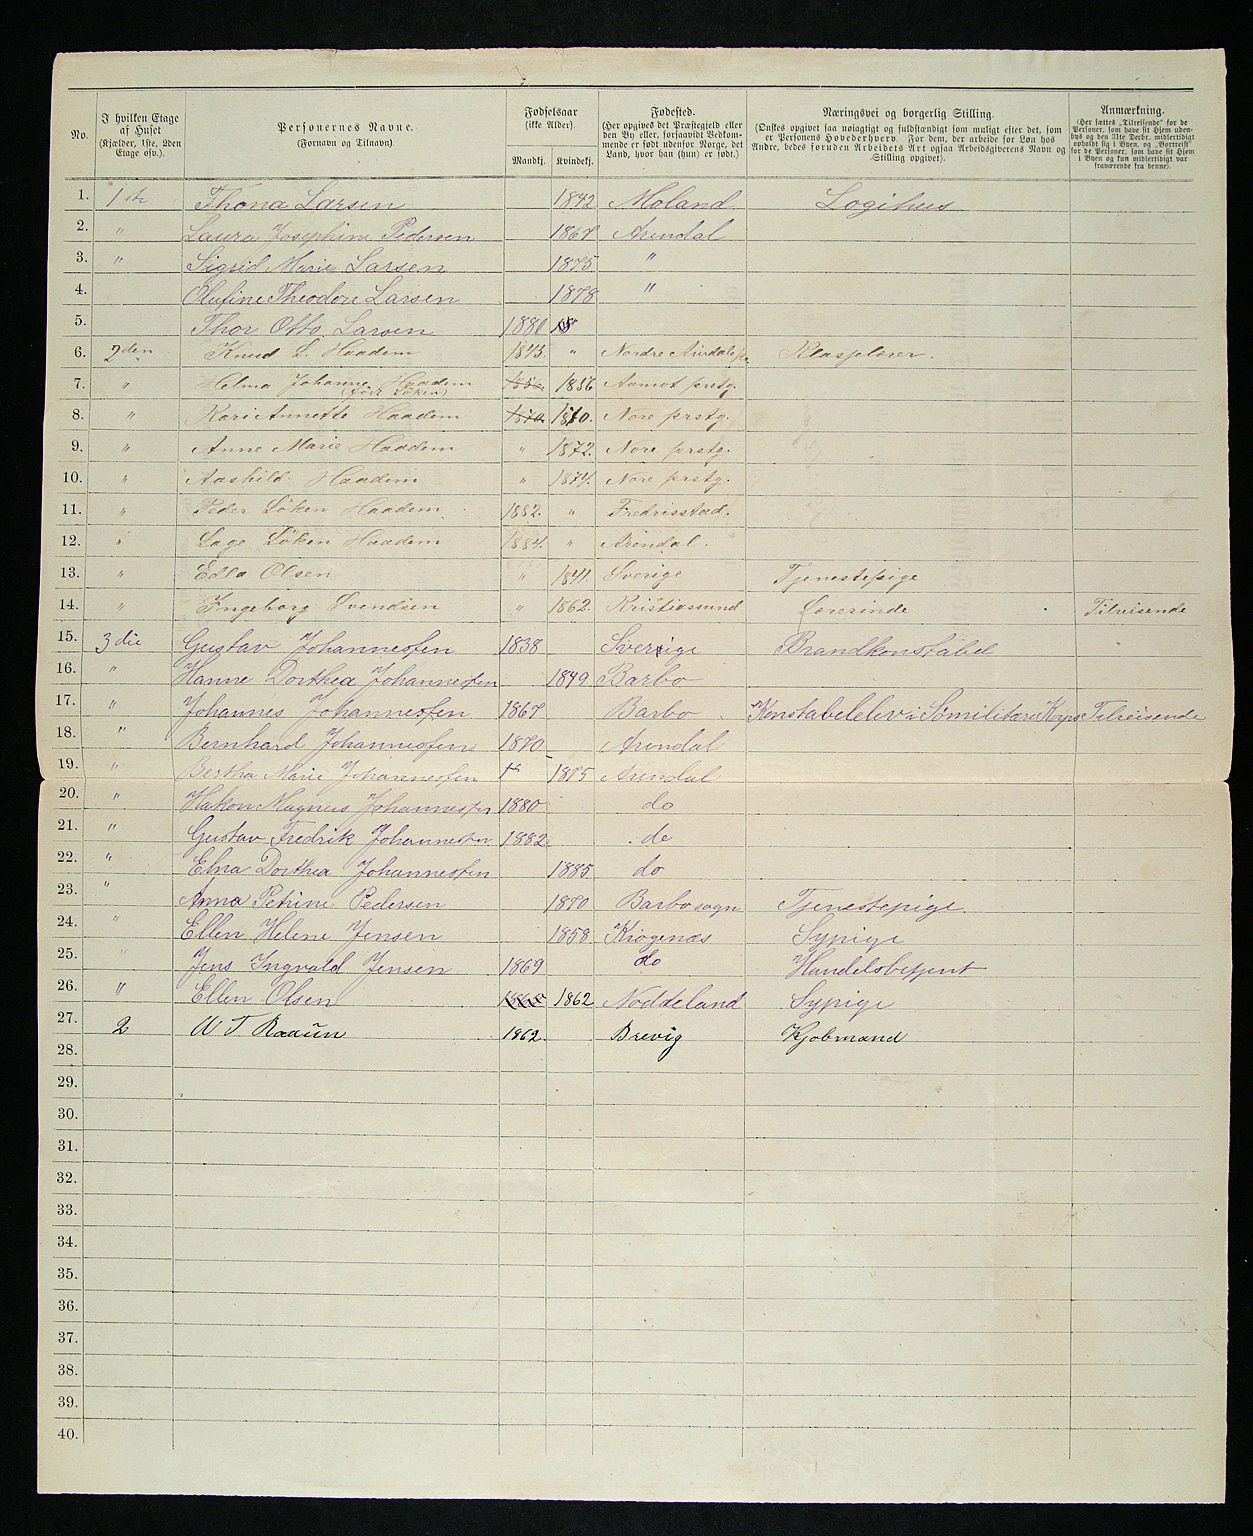 No.
I hvilken Etage af Huset (Kjælder, 1ste, 2den Etage osv.).
Personernes Navne. (Fornavn og Tilnavn)
Fødselsaar (ikke Alder).
Mandkj. Kvindekj.
Fødested. (Her opgives det Præstegjeld eller den By eller, forsaavidt Vedkommende er født udenfor Norge, det Land, hvor han (hun) er født.)
Næringsvei og borgerlig Stilling. (Ønskes opgivet saa nøiagtigt og fuldstændigt som muligt efter det, som er Personens Hovederhverv. For dem, der arbeide for Løn hos Andre, bedes foruden Arbeidets Art ogsaa Arbeidsgiverens Navn og Stilling opgivet).
Anmærkning. (Her sættes „Tilreisende“ for de Personer, som have sit Hjem udenbys og den 31te Decbr. midlertidigt opholdt sig i Byen, og „Bortreist“ for de Personer, som have sit Hjem i Byen og kun midlertidigt var fraværende fra denne).
1. 1ste Thona Larsen 1842 Moland Logihus
2. " Laura Josephine Pedersen 1867 Arendal
3. " Sigrid Marie Larsen 1875 "
4. Olufine Theodore Larsen 1878 "
5. Thor Otto Larsen 1880
6. 2den Knud L. Haadem 1843. " Nordre Klasselærer.
7. " Helma Johanne Haadem (født Løken) 1856 Aamot prstg.
8. " Kari Annette Haadem 1870. 1870. Nore prstg.
9. " Anne Marie Haadem " 1872. Nore prstg.
10. " Aashild Haadem " 1874. Nore prstg.
11. " Peder Løken Haadem 1882. " Fredrisstad.
12. " Lage Löken Haadem 1884. " Arendal.
13. " Edla Olsen " 1841. Sverige Tjenestepige
14. " Ingeborg Svendsen " 1862. Kristiassund Lærerinde Tilreisende
15. 3die Gustav Johannessen 1838 Sverige Brandkonstabel
16. " Hanne Dorthea Johannessen 1849 Barbo
17. " Johannes Johannessen 1867 Barbo Konstabelelev i Sömilitære Korps Tilreisende
18. " Bernhard Johannessen 1870 Arendal
19. " Bertha Marie Johannessen 1875 Arendal
20. " Hakon Magnus Johannessen 1880 do
21. " Gustav Fredrik Johannessen 1882 do
22. " Elna Dorthea Johannessen 1885 do
23. " Anna Petrine Pedersen 1870 Barbo sogn Tjenestepige.
24. " Ellen Helene Jensen 1858. Krogenæs Sypige
25. Jens Ingvald Jensen 1869 do Handelsbetjent
26. " Ellen Olsen 1862 Noddeland Sypige
27. 2 W T. Raaün 1862. Brevig Kjøbmand
28.
29.
30.
31.
32.
33.
34.
35.
36.
37.
38.
39.
40.